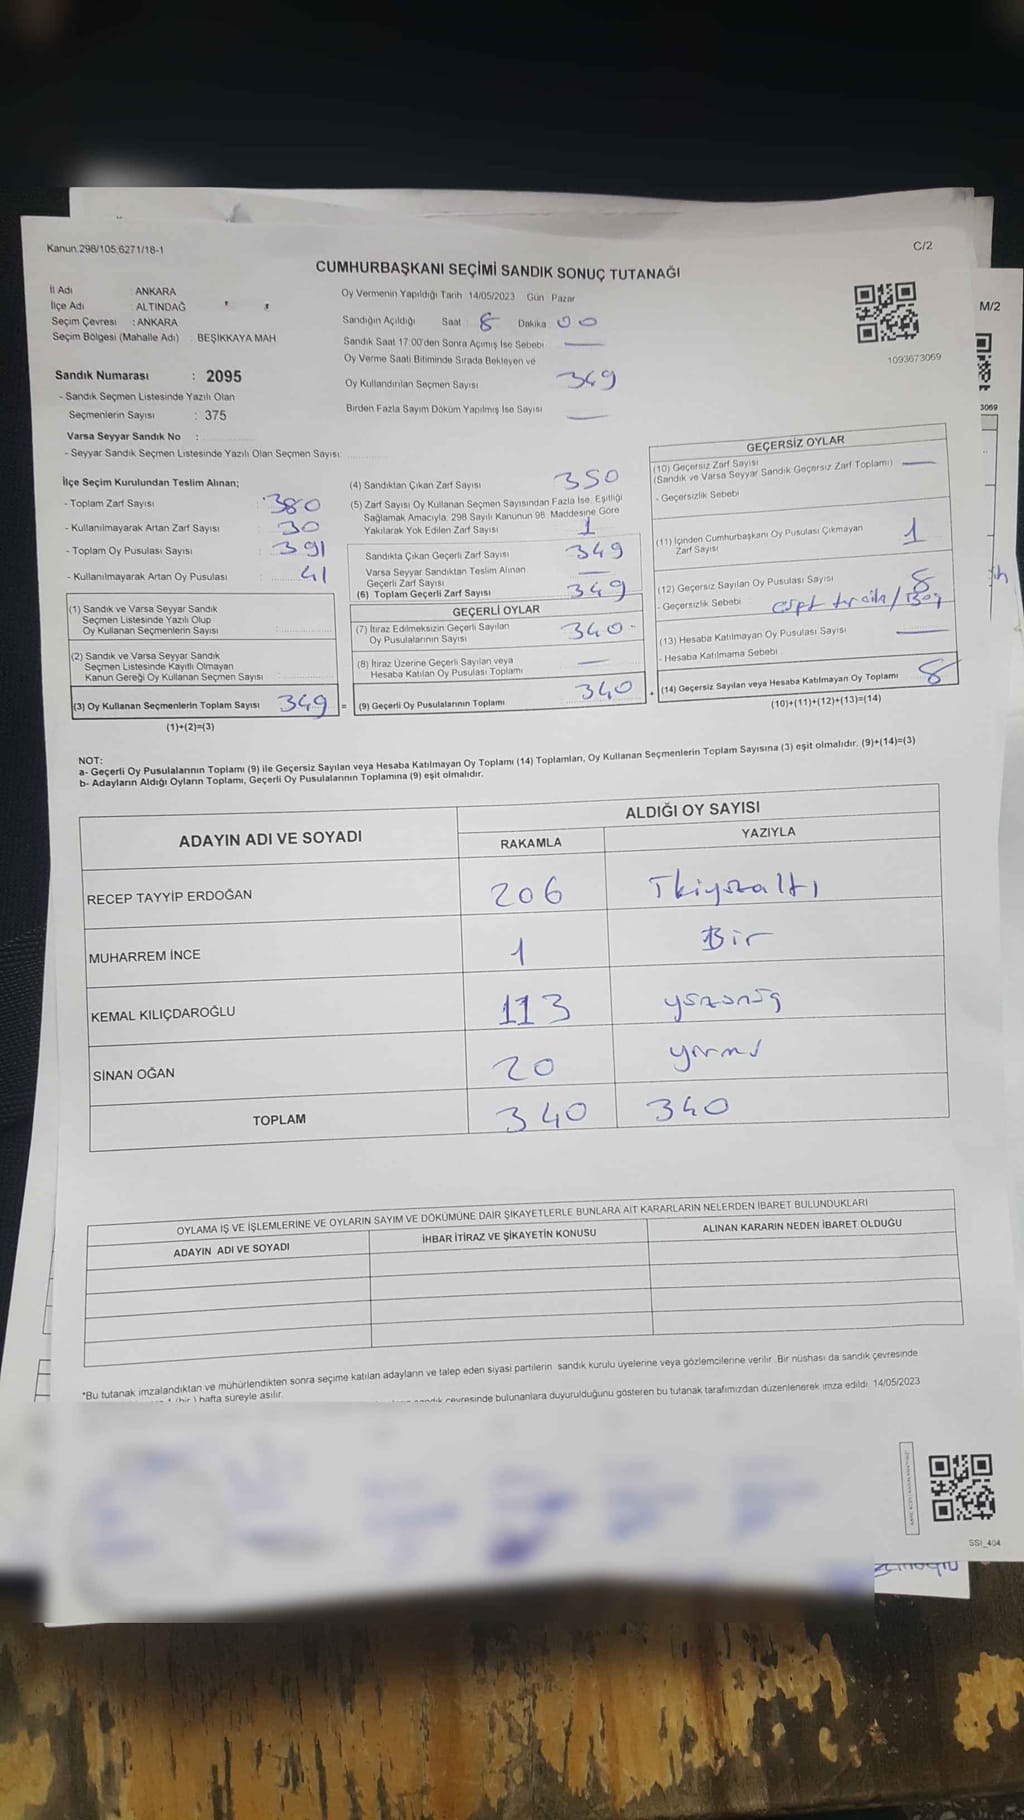 Kanun.298/105,6271/18-1
C/2
CUMHURBAŞKANI SEÇİMİ SANDIK SONUÇ TUTANAĞI
İl Adı : ANKARA
İlçe Adı : ALTINDAĞ
Seçim Çevresi : ANKARA
Seçim Bölgesi (Mahalle Adı) BEŞİKKAYA MAH
Sandık Numarası : 2095
- Sandık Seçmen Listesinde Yazılı Olan
Seçmenlerin Sayısı : 375
Varsa Seyyar Sandık No :
- Seyyar Sandık Seçmen Listesinde Yazılı Olan Seçmen Sayısı:
Oy Vermenin Yapıldığı Tarih 14/05/2023 Gün Pazar
Sandığın Açıldığı Saat 8 Dakika 00
Sandık Saat 17:00'den Sonra Açımış İse Sebebi —
Oy Verme Saati Bitiminde Sırada Bekleyen ve
Oy Kullandırılan Seçmen Sayısı 349
Birden Fazla Sayım Döküm Yapılmış İse Sayısı —
1093673069
M/2
3069
İlçe Seçim Kurulundan Teslim Alınan;
- Toplam Zarf Sayısı 380
- Kullanılmayarak Artan Zarf Sayısı : 30
- Toplam Oy Pusulası Sayısı : 391
- Kullanılmayarak Artan Oy Pusulası : 41
(1) Sandık ve Varsa Seyyar Sandık
Seçmen Listesinde Yazılı Olup
Oy Kullanan Seçmenlerin Sayısı
(2) Sandık ve Varsa Seyyar Sandık
Seçmen Listesinde Kayıtlı Olmayan
Kanun Gereği Oy Kullanan Seçmen Sayısı
(3) Oy Kullanan Seçmenlerin Toplam Sayısı 349 =
(1)+(2)=(3)
(4) Sandıktan Çıkan Zarf Sayısı 350
(5) Zarf Sayısı Oy Kullanan Seçmen Sayısından Fazla İse, Eşitliği
Sağlamak Amacıyla, 298 Sayılı Kanunun 98. Maddesine Göre
Yakılarak Yok Edilen Zarf Sayısı 1
Sandıkta Çıkan Geçerli Zarf Sayısı 349
Varsa Seyyar Sandıktan Teslim Alınan
Geçerli Zarf Sayısı —
(6) Toplam Geçerli Zarf Sayısı 349
GEÇERLİ OYLAR
(7) İtiraz Edilmeksizin Geçerli Sayılan
Oy Pusulalarının Sayısı 340
(8) İtiraz Üzerine Geçerli Sayılan veya
Hesaba Katılan Oy Pusulası Toplamı —
(9) Geçerli Oy Pusulalarının Toplamı 340 +
GEÇERSİZ OYLAR
(10) Geçersiz Zarf Sayısı
(Sandık ve Varsa Seyyar Sandık Geçersiz Zarf Toplamı) —
- Geçersizlik Sebebi
(11) İçinden Cumhurbaşkanı Oy Pusulası Çıkmayan
Zarf Sayısı 1
(12) Geçersiz Sayılan Oy Pusulası Sayısı 8
- Geçersizlik Sebebi
(13) Hesaba Katılmayan Oy Pusulası Sayısı —
- Hesaba Katılmama Sebebi
(14) Geçersiz Sayılan veya Hesaba Katılmayan Oy Toplamı 8
(10)+(11)+(12)+(13)=(14)
NOT:
a- Geçerli Oy Pusulalarının Toplamı (9) ile Geçersiz Sayılan veya Hesaba Katılmayan Oy Toplamı (14) Toplamları, Oy Kullanan Seçmenlerin Toplam Sayısına (3) eşit olmalıdır. (9)+(14)=(3)
b- Adayların Aldığı Oyların Toplamı, Geçerli Oy Pusulalarının Toplamına (9) eşit olmalıdır.
ADAYIN ADI VE SOYADI ALDIĞI OY SAYISI
RAKAMLA YAZIYLA
RECEP TAYYİP ERDOĞAN 206 İkiyüzaltı
MUHARREM İNCE 1 Bir
KEMAL KILIÇDAROĞLU 113 yüzonüç
SİNAN OĞAN 20 yirmi
TOPLAM 340 340
OYLAMA İŞ VE İŞLEMLERİNE VE OYLARIN SAYIM VE DÖKÜMÜNE DAİR ŞİKAYETLERLE BUNLARA AİT KARARLARIN NELERDEN İBARET BULUNDUKLARI
ADAYIN ADI VE SOYADI İHBAR İTİRAZ VE ŞİKAYETİN KONUSU ALINAN KARARIN NEDEN İBARET OLDUĞU
*Bu tutanak imzalandıktan ve mühürlendikten sonra seçime katılan adayların ve talep eden siyasi partilerin sandık kurulu üyelerine veya gözlemcilerine verilir. Bir nüshası da sandık çevresinde
(bir) hafta süreyle asılır.
çevresinde bulunanlara duyurulduğunu gösteren bu tutanak tarafımızdan düzenlenerek imza edildi. 14/05/2023
SSI_404